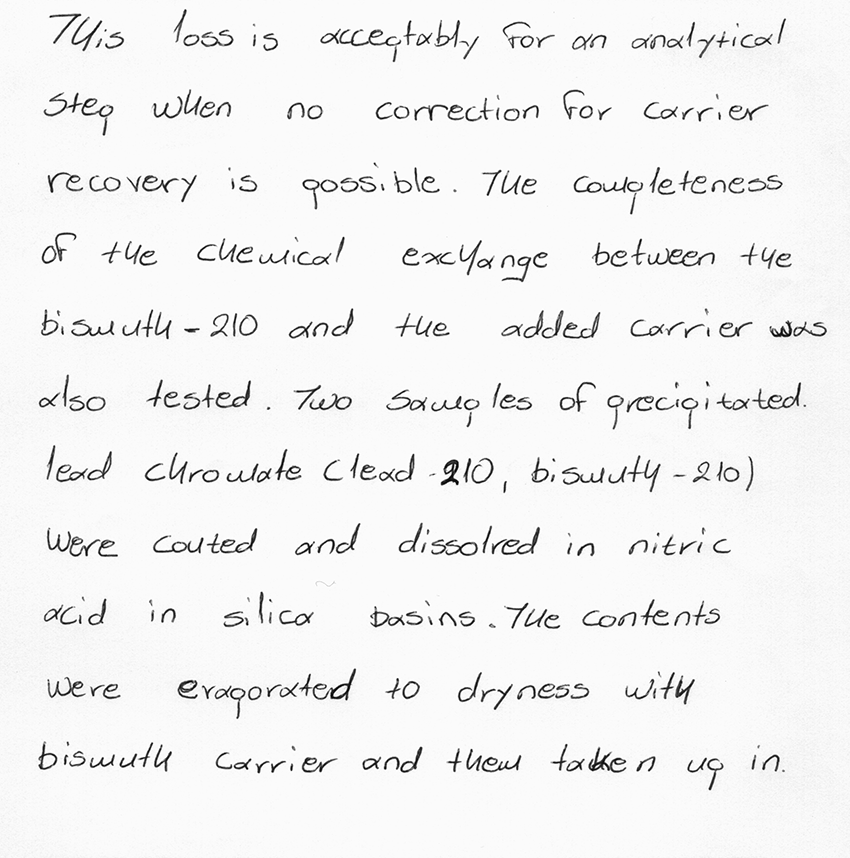 This loss is acceptably for an analytical
step when no correction for carrier
recovery is possible. The completeness
of the chemical exchange between the
bismuth-210 and the added carrier was
also tested. Two samples of precipitated.
lead chromate (lead-210, bismuth-210)
were couted and dissolred in nitric
acid in silica basins. The contents
were evaporated to dryness with
bismuth carrier and them taken up in.